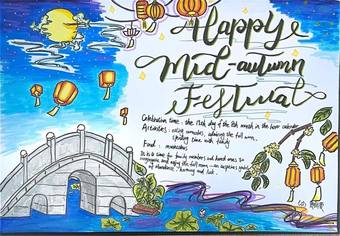 Happy
Mid-autumn
Festival
Celebration time: the 15th day of the 8th month in the lunar calendar
Activities: eating mooncakes, admiring the full moon,
spending time with family
Food: mooncakes
It is a time for family members and loved ones to
congregate and enjoy the full moon - an auspicious symbol
of abundance, harmony and luck.